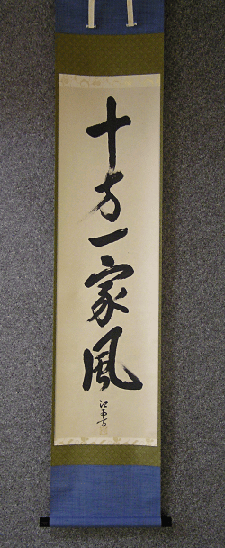 十方一家風